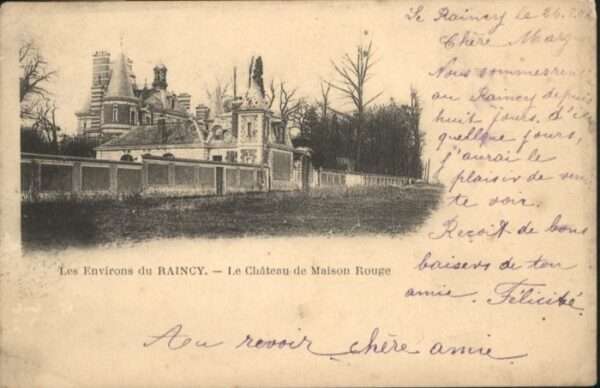 Le Raincy le 26
Chère
Nous sommes
au Raincy depuis
huit jours. d'ici
quelque jours,
j'aurai le
plaisir de
te voir.
Reçoit de bons
baisers de ton
amie. Félicité
Les Environs du RAINCY. — Le Château de Maison Rouge
Au revoir chère amie